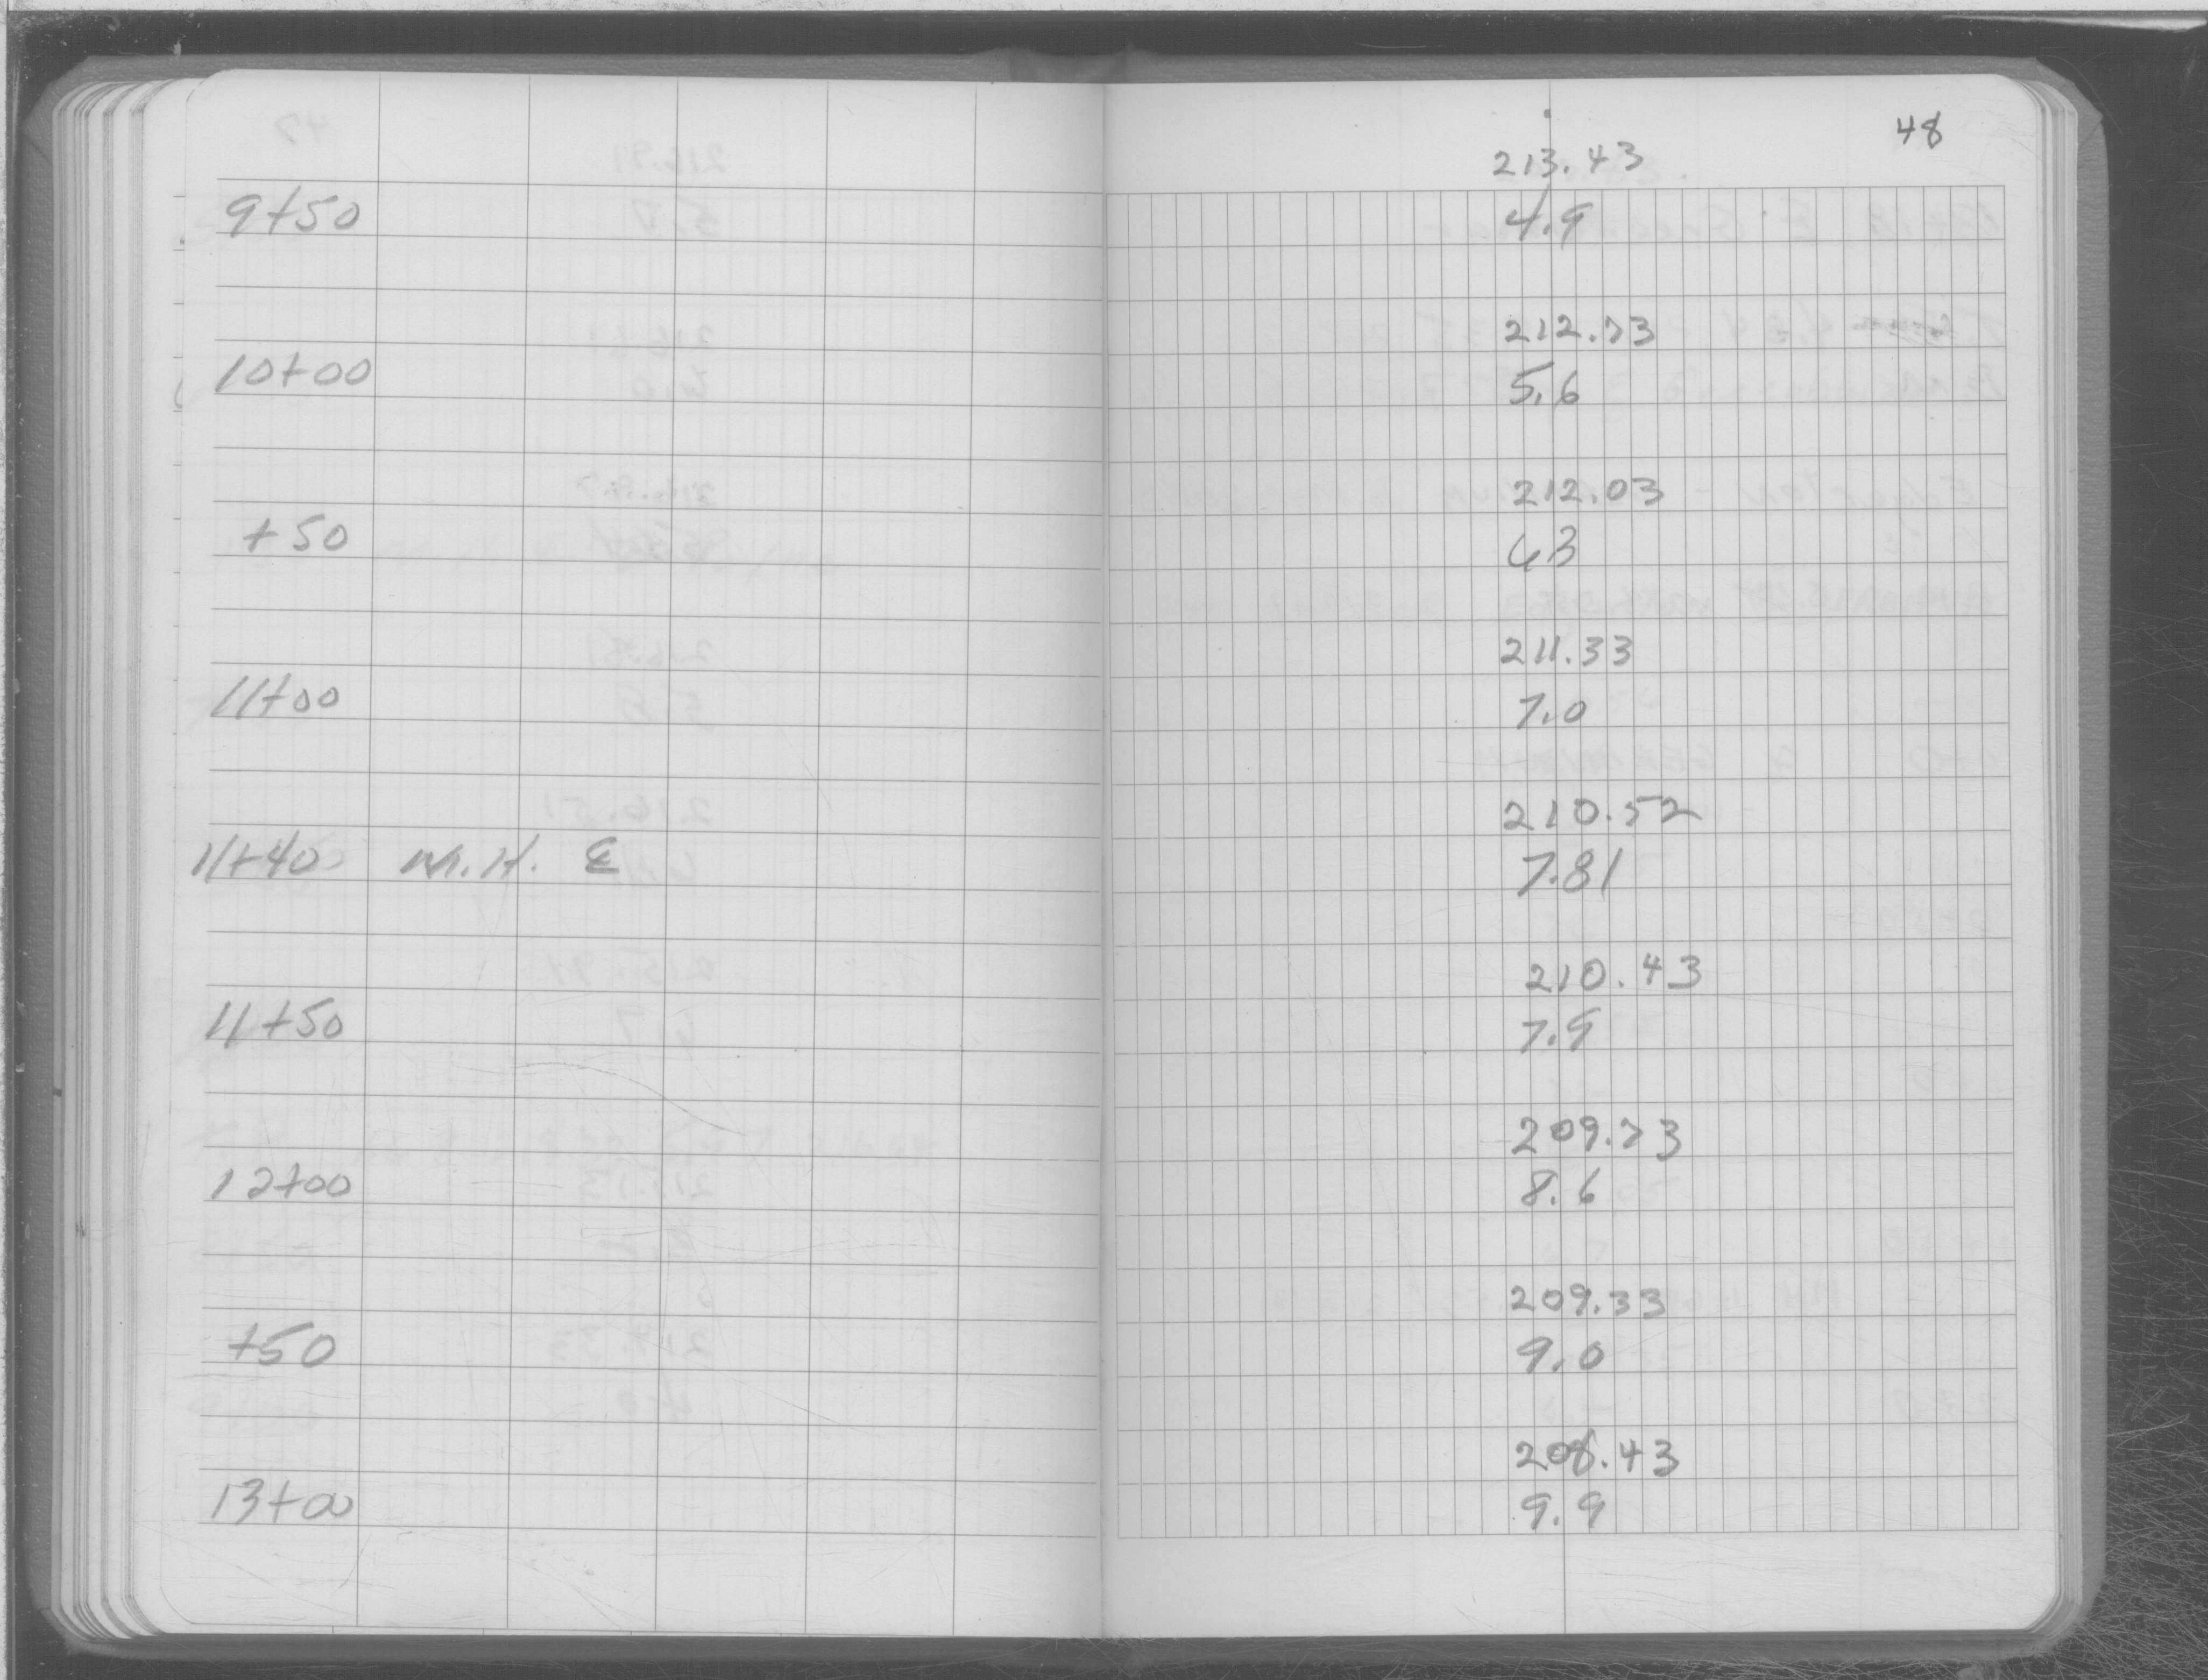 48
213.43
9+50 4.9
212.73
10+00 5.6
212.03
+50 63
211.33
11+00 7.0
210.52
11+40 M.H. ℄ 7.81
210.43
11+50 7.9
209.73
12+00 8.6
209.33
+50 9.0
208.43
13+00 9.9